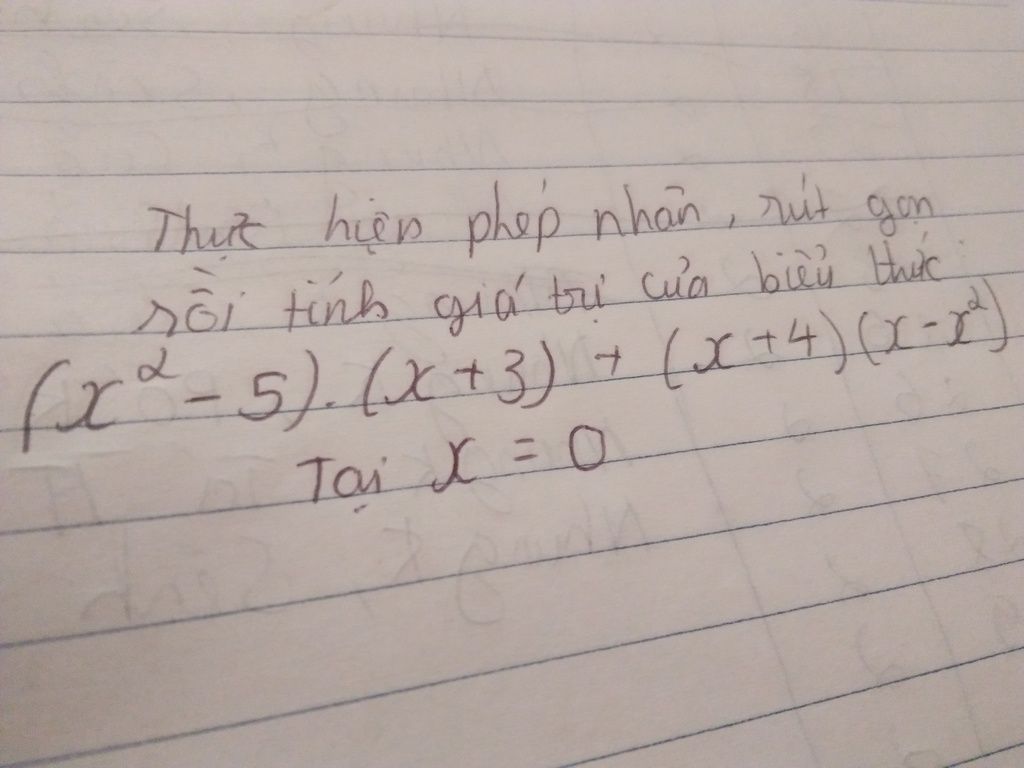 Thực hiện phép nhân, rút gọn
rồi tính giá trị của biểu thức
(x² - 5).(x+3) + (x+4)(x-x²)
Tại x = 0